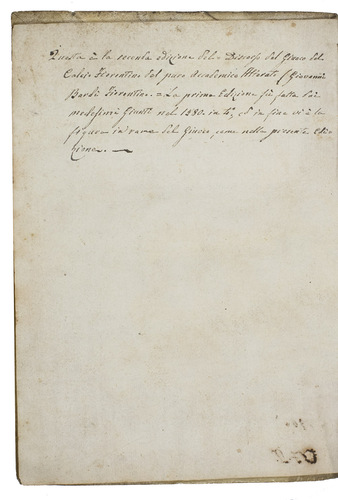 Questa è la seconda edizione del = Discorso del Giuoco del
Calcio Fiorentino del puro Accademico Alterato (Giovanni
Bardi Fiorentino. = La prima Edizione fù fatta dai
medesimi Giunti nel 1580. in 4.°, ed in fine vi è la
figura in rame del Giuoco, come nella presente Edi-
zione.